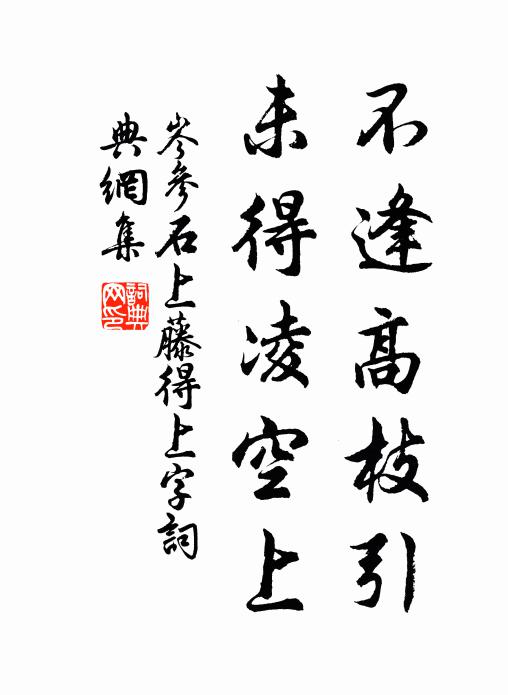 不逢高枝引
未得凌空上
岑參石上藤得上字詞
典網集
詞典
网印